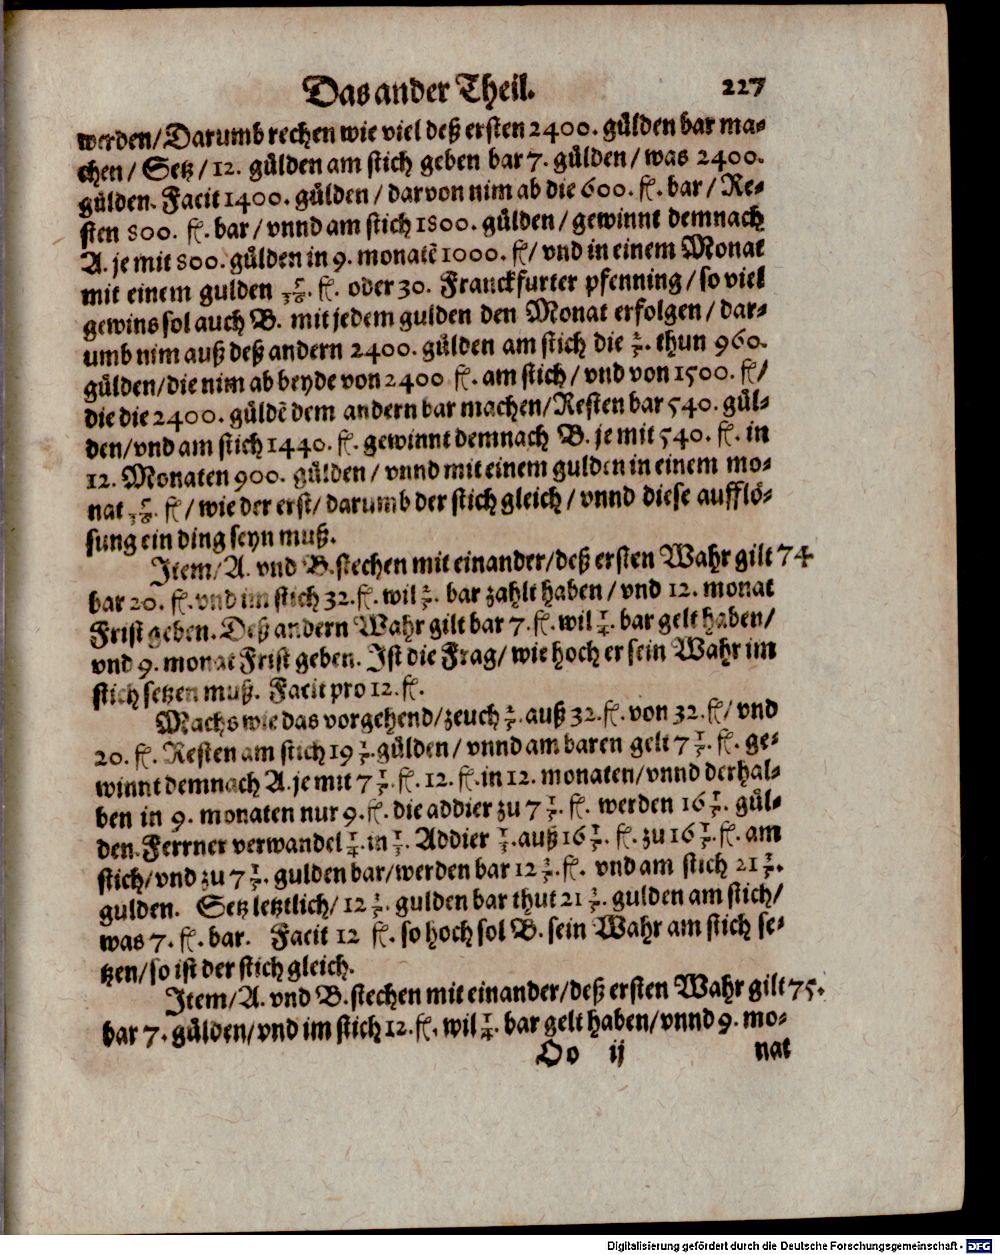 Das ander Theil. 227
werden/Darumb rechen wie viel deß ersten 2400. gülden bar ma-
chen/ Setz/12. gülden am stich geben bar 7. gülden/was 2400.
gülden. Facit 1400. gülden/darvon nim ab die 600. fl. bar/Re-
sten 800. fl. bar/vnnd am stich 1800. gülden/gewinnt demnach
A. je mit 800. gülden in 9. monatẽ 1000. fl/ vnd in einem Monat
mit einem gulden 5/36. fl. oder 30. Franckfurter pfenning/so viel
gewins sol auch B. mit jedem gulden den Monat erfolgen/dar-
umb nim auß deß andern 2400. gülden am stich die 2/5. thun 960.
gülden/die nim ab beyde von 2400 fl. am stich/vnd von 1500. fl/
die die 2400. güldẽ dem andern bar machen/Resten bar 540. gül-
den/vnd am stich 1440. fl. gewinnt demnach B. je mit 540. fl. in
12. Monaten 900. gülden/vnnd mit einem gulden in einem mo-
nat 5/36. fl/wie der erst/darumb der stich gleich/vnnd diese aufflö-
sung ein ding seyn muß.
Item/A. vnd B. stechen mit einander/deß ersten Wahr gilt 74
bar 20. fl. vnd im stich 32. fl. wil 2/5. bar zahlt haben/vnd 12. monat
Frist geben. Deß andern Wahr gilt bar 7. fl. wil 1/4. bar gelt haben/
vnd 9. monat Frist geben. Ist die Frag/wie hoch er sein Wahr im
stich setzen muß. Facit pro 12. fl.
Machs wie das vorgehend/zeuch 2/5. auß 32. fl. von 32. fl/vnd
20. fl. Resten am stich 19 1/5. gülden/vnnd am baren gelt 7 1/5. fl. ge-
winnt demnach A. je mit 7 1/5. fl. 12. fl. in 12. monaten/vnnd derhal-
ben in 9. monaten nur 9. fl. die addier zu 7 1/5. fl. werden 16 1/5. gül-
den. Ferrner verwandel 1/4. in 1/3. Addier 1/3. auß 16 1/5. fl. zu 16 1/5. fl. am
stich/vnd zu 7 1/5. gulden bar/werden bar 12 3/5. fl. vnd am stich 21 3/5.
gulden. Setz letztlich/12 3/5. gulden bar thut 21 3/5. gulden am stich/
was 7. fl. bar. Facit 12 fl. so hoch sol B. sein Wahr am stich se-
tzen/so ist der stich gleich.
Item/A. vnd B. stechen mit einander/deß ersten Wahr gilt 75.
bar 7. gülden/vnd im stich 12. fl. wil 1/4. bar gelt haben/vnnd 9. mo-
Oo ij nat
Digitalisierung gefördert durch die Deutsche Forschungsgemeinschaft - DFG